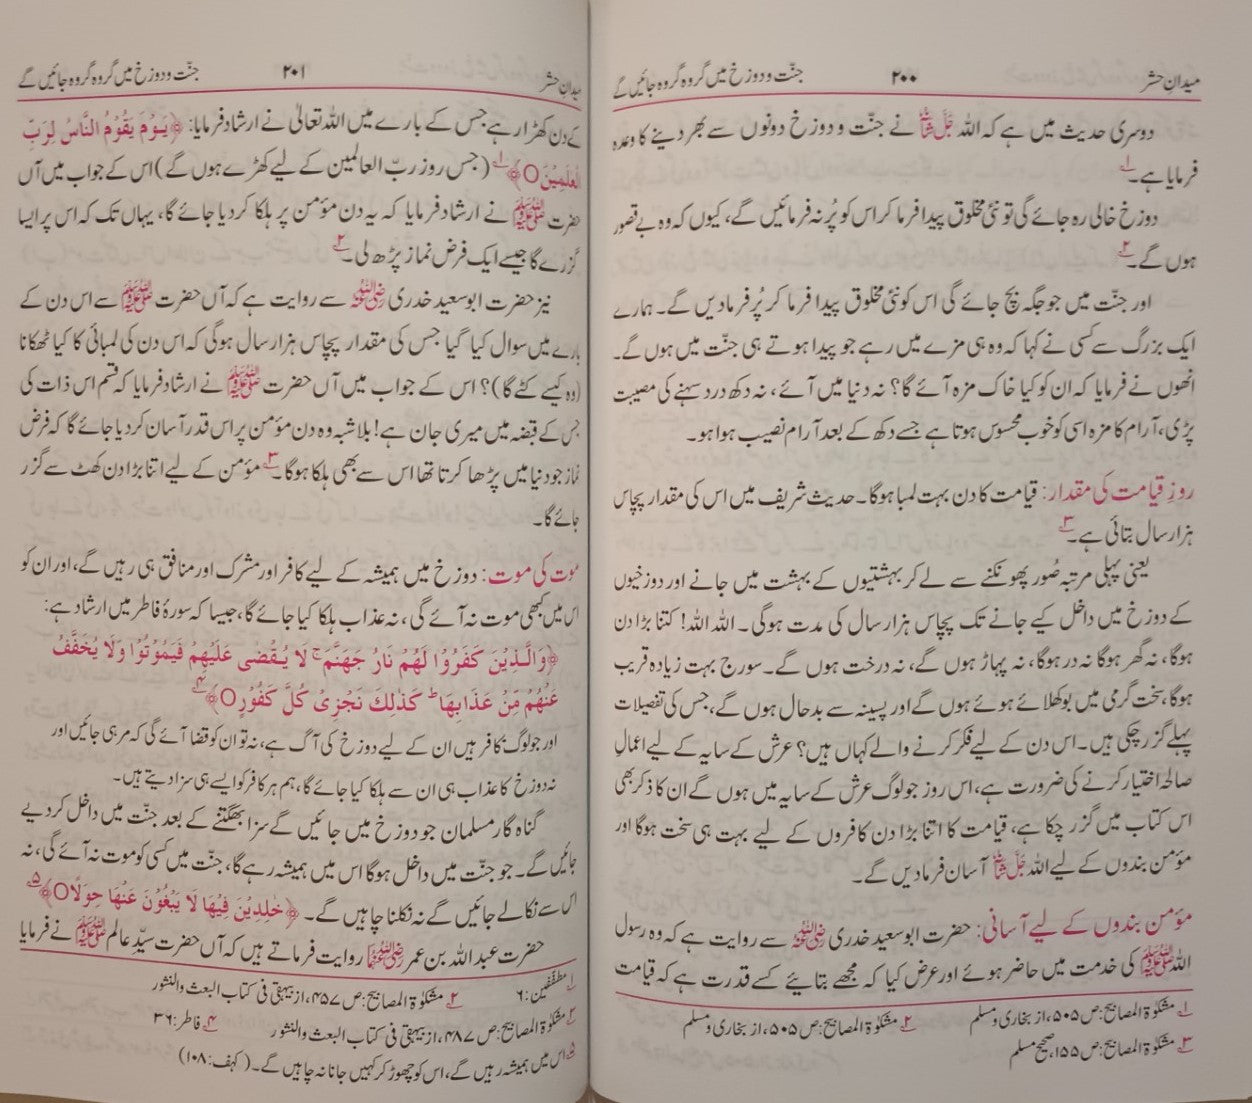 میدانِ حشر ۲۰۰ جنّت و دوزخ میں گروہ گروہ جائیں گے
دوسری حدیث میں ہے کہ اللہ جَلَّ شَانُہٗ نے جنّت و دوزخ دونوں سے بھر دینے کا وعدہ
فرمایا ہے۔ ۱
دوزخ خالی رہ جائے گی تو نئی مخلوق پیدا فرما کر اس کو پُر نہ فرمائیں گے، کیوں کہ وہ بے قصور
ہوں گے۔ ۲
اور جنّت میں جو جگہ بچ جائے گی اس کو نئی مخلوق پیدا فرما کر پُر فرما دیں گے۔ ہمارے
ایک بزرگ سے کسی نے کہا کہ وہ ہی مزے میں رہے جو پیدا ہوتے ہی جنّت میں ہوں گے۔
انھوں نے فرمایا کہ ان کو کیا خاک مزہ آئے گا؟ نہ دنیا میں آئے، نہ دکھ درد سہنے کی مصیبت
پڑی، آرام کا مزہ اسی کو خوب محسوس ہوتا ہے جسے دکھ کے بعد آرام نصیب ہوا ہو۔
روزِ قیامت کی مقدار: قیامت کا دن بہت لمبا ہوگا۔ حدیث شریف میں اس کی مقدار پچاس
ہزار سال بتائی ہے۔ ۳
یعنی پہلی مرتبہ صُور پھونکنے سے لے کر بہشتیوں کے بہشت میں جانے اور دوزخیوں
کے دوزخ میں داخل کیے جانے تک پچاس ہزار سال کی مدت ہوگی۔ اللہ اللہ! کتنا بڑا دن
ہوگا، نہ گھر ہوگا نہ در ہوگا، نہ پہاڑ ہوں گے، نہ درخت ہوں گے۔ سورج بہت زیادہ قریب
ہوگا، سخت گرمی میں بوکھلائے ہوئے ہوں گے اور پسینہ سے بدحال ہوں گے، جس کی تفصیلات
پہلے گزر چکی ہیں۔ اس دن کے لیے فکر کرنے والے کہاں ہیں؟ عرش کے سایہ کے لیے اعمالِ
صالحہ اختیار کرنے کی ضرورت ہے، اس روز جو لوگ عرش کے سایہ میں ہوں گے ان کا ذکر بھی
اس کتاب میں گزر چکا ہے، قیامت کا اتنا بڑا دن کافروں کے لیے بہت ہی سخت ہوگا اور
مؤمن بندوں کے لیے اللہ جَلَّ شَانُہٗ آسان فرما دیں گے۔
مؤمن بندوں کے لیے آسانی: حضرت ابو سعید خدری رضی اللہ عنہ سے روایت ہے کہ وہ رسول
اللہ ﷺ کی خدمت میں حاضر ہوئے اور عرض کیا کہ مجھے بتائیے کسے قدرت ہے کہ قیامت
۱ مشکوٰۃ المصابیح: ص ۵۰۵، از بخاری و مسلم ۲ مشکوٰۃ المصابیح: ص ۵۰۵، از بخاری و مسلم
۳ مشکوٰۃ المصابیح: ص ۱۵۵، صحیح مسلم
میدانِ حشر ۲۰۱ جنّت و دوزخ میں گروہ گروہ جائیں گے
کے دن کھڑا رہے جس کے بارے میں اللہ تعالیٰ نے ارشاد فرمایا: ﴿یَوْمَ یَقُوْمُ النَّاسُ لِرَبِّ
الْعٰلَمِیْنَ O﴾ ۱ (جس روز ربّ العالمین کے لیے کھڑے ہوں گے) اس کے جواب میں آں
حضرت ﷺ نے ارشاد فرمایا کہ یہ دن مؤمن پر ہلکا کر دیا جائے گا، یہاں تک کہ اس پر ایسا
گزرے گا جیسے ایک فرض نماز پڑھ لی۔ ۲
نیز حضرت ابو سعید خدری رضی اللہ عنہ سے روایت ہے کہ آں حضرت ﷺ سے اس دن کے
بارے میں سوال کیا گیا جس کی مقدار پچاس ہزار سال ہوگی کہ اس دن کی لمبائی کا کیا ٹھکانا
(وہ کیسے کٹے گا)؟ اس کے جواب میں آں حضرت ﷺ نے ارشاد فرمایا کہ قسم اس ذات کی
جس کے قبضہ میں میری جان ہے! بلاشبہ وہ دن مؤمن پر اس قدر آسان کر دیا جائے گا کہ فرض
نماز جو دنیا میں پڑھا کرتا تھا اس سے بھی ہلکا ہوگا۔ ۳ مؤمن کے لیے اتنا بڑا دن کھٹ سے گزر
جائے گا۔
موت کی موت: دوزخ میں ہمیشہ کے لیے کافر اور مشرک اور منافق ہی رہیں گے، اور ان کو
اس میں کبھی موت نہ آئے گی، نہ عذاب ہلکا کیا جائے گا، جیسا کہ سورۂ فاطر میں ارشاد ہے:
﴿وَالَّذِیْنَ کَفَرُوْا لَهُمْ نَارُ جَهَنَّمَ ۚ لَا یُقْضٰی عَلَیْهِمْ فَیَمُوْتُوْا وَلَا یُخَفَّفُ
عَنْهُمْ مِّنْ عَذَابِهَا ؕ کَذٰلِكَ نَجْزِیْ کُلَّ کَفُوْرٍ O﴾ ۴
اور جو لوگ کافر ہیں ان کے لیے دوزخ کی آگ ہے، نہ تو ان کو قضا آئے گی کہ مر ہی جائیں اور
نہ دوزخ کا عذاب ہی ان سے ہلکا کیا جائے گا، ہم ہر کافر کو ایسے ہی سزا دیتے ہیں۔
گناہ گار مسلمان جو دوزخ میں جائیں گے سزا بھگتنے کے بعد جنّت میں داخل کر دیے
جائیں گے۔ جو جنّت میں داخل ہوگا اس میں ہمیشہ رہے گا، جنّت میں کسی کو موت نہ آئے گی، نہ
اس سے نکالے جائیں گے نہ نکلنا چاہیں گے۔ ﴿خٰلِدِیْنَ فِیْهَا لَا یَبْغُوْنَ عَنْهَا حِوَلًا O﴾ ۵
حضرت عبد اللہ بن عمر رضی اللہ عنہما روایت فرماتے ہیں کہ آں حضرت سیّدِ عالم ﷺ نے فرمایا
۱ مطفّفین: ۶ ۲ مشکوٰۃ المصابیح: ص ۴۵۷، از بیہقی فی کتاب البعث والنشور
۳ مشکوٰۃ المصابیح: ص ۴۸۷، از بیہقی فی کتاب البعث والنشور ۴ فاطر: ۳۶
۵ اس میں ہمیشہ رہیں گے، اس کو چھوڑ کر کہیں جانا نہ چاہیں گے۔ (کہف: ۱۰۸)